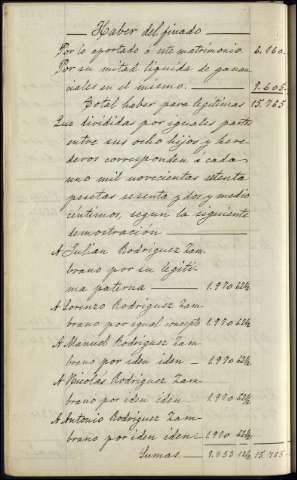 Haber del finado
Por lo aportado á este matrimonio. 6.060.
Por su mitad líquida de ganan-
ciales en el mismo. 9.605.
Total haber para legítimas 15.765
Que divididas por iguales partes
entre sus ocho hijos y here-
deros corresponden á cada
uno mil novecientas setenta
pesetas sesenta y dos y medio
centimos, segun la siguiente
demostración
A Julian Rodriguez Zam-
brano por su legíti-
ma paterna 1.970 62½
A Lorenzo Rodriguez Zam-
brano por igual concepto 1.970 62½
A Manuel Rodriguez Zam-
brano por iden iden 1.970 62½
A Nicolás Rodriguez Zam-
brano por iden iden 1.970 62½
A Antonio Rodriguez Zam-
brano por iden iden 1.970 62½
Sumas 9.853 12½ 15.765